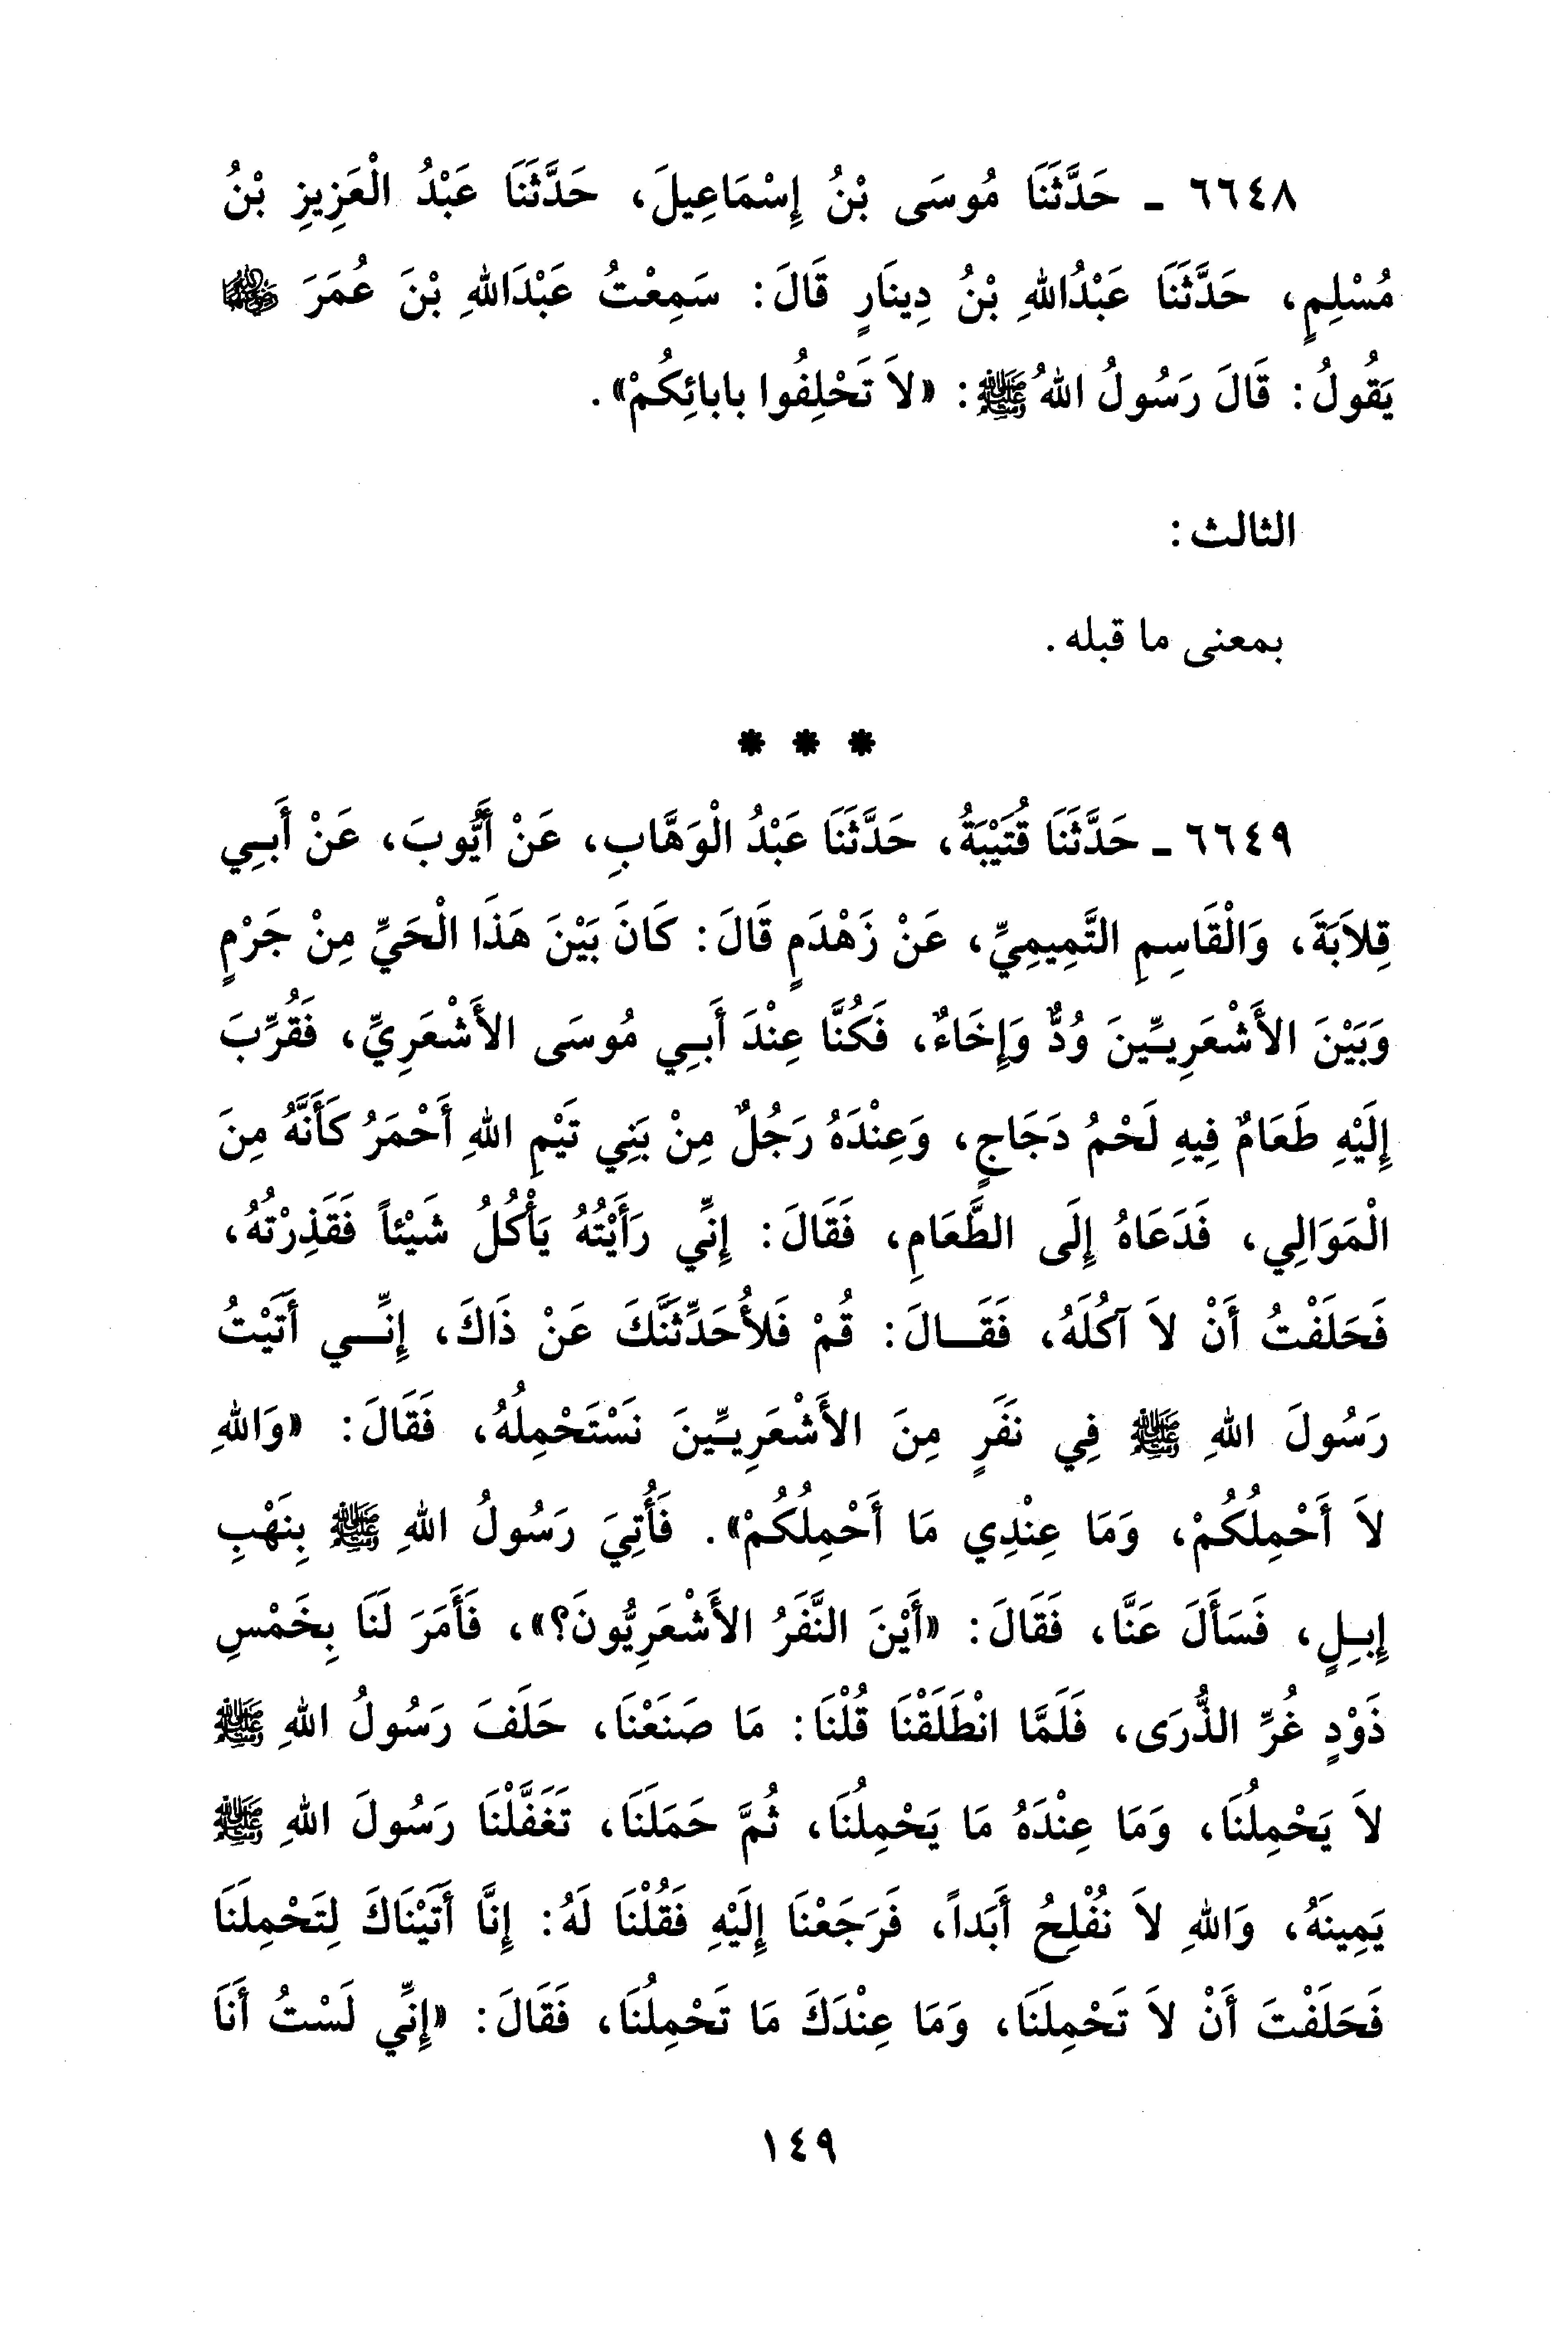 ٦٦٤٨ ـ حَدَّثَنَا مُوسَى بْنُ إِسْمَاعِيلَ، حَدَّثَنَا عَبْدُ الْعَزِيزِ بْنُ
مُسْلِمٍ، حَدَّثَنَا عَبْدُاللهِ بْنُ دِينَارٍ قَالَ: سَمِعْتُ عَبْدَاللهِ بْنَ عُمَرَ رضي الله عنهما
يَقُولُ: قَالَ رَسُولُ اللهُ ﷺ: «لاَ تَحْلِفُوا بابائِكُمْ».
الثالث:
بمعنى ما قبله.
* * *
٦٦٤٩ ـ حَدَّثَنَا قُتَيْبَةُ، حَدَّثَنَا عَبْدُ الْوَهَّابِ، عَنْ أَيُّوبَ، عَنْ أَبِي
قِلاَبَةَ، وَالْقَاسِمِ التَّمِيمِيِّ، عَنْ زَهْدَمٍ قَالَ: كَانَ بَيْنَ هَذَا الْحَيِّ مِنْ جَرْمٍ
وَبَيْنَ الأَشْعَرِيِّينَ وُدٌّ وَإِخَاءٌ، فَكُنَّا عِنْدَ أَبِي مُوسَى الأَشْعَرِيِّ، فَقُرِّبَ
إِلَيْهِ طَعَامٌ فِيهِ لَحْمُ دَجَاجٍ، وَعِنْدَهُ رَجُلٌ مِنْ بَنِي تَيْمِ اللهِ أَحْمَرُ كَأَنَّهُ مِنَ
الْمَوَالِي، فَدَعَاهُ إِلَى الطَّعَامِ، فَقَالَ: إِنِّي رَأَيْتُهُ يَأْكُلُ شَيْئاً فَقَذِرْتُهُ،
فَحَلَفْتُ أَنْ لاَ آكُلَهُ، فَقَالَ: قُمْ فَلأُحَدِّثَنَّكَ عَنْ ذَاكَ، إِنِّي أَتَيْتُ
رَسُولَ اللهِ ﷺ فِي نَفَرٍ مِنَ الأَشْعَرِيِّينَ نَسْتَحْمِلُهُ، فَقَالَ: «وَاللهِ
لاَ أَحْمِلُكُمْ، وَمَا عِنْدِي مَا أَحْمِلُكُمْ». فَأُتِيَ رَسُولُ اللهِ ﷺ بِنَهْبِ
إِبِلٍ، فَسَأَلَ عَنَّا، فَقَالَ: «أَيْنَ النَّفَرُ الأَشْعَرِيُّونَ؟»، فَأَمَرَ لَنَا بِخَمْسِ
ذَوْدٍ غُرِّ الذُّرَى، فَلَمَّا انْطَلَقْنَا قُلْنَا: مَا صَنَعْنَا، حَلَفَ رَسُولُ اللهِ ﷺ
لاَ يَحْمِلُنَا، وَمَا عِنْدَهُ مَا يَحْمِلُنَا، ثُمَّ حَمَلَنَا، تَغَفَّلْنَا رَسُولَ اللهِ ﷺ
يَمِينَهُ، وَاللهِ لاَ نُفْلِحُ أَبَداً، فَرَجَعْنَا إِلَيْهِ فَقُلْنَا لَهُ: إِنَّا أَتَيْنَاكَ لِتَحْمِلَنَا
فَحَلَفْتَ أَنْ لاَ تَحْمِلَنَا، وَمَا عِنْدَكَ مَا تَحْمِلُنَا، فَقَالَ: «إِنِّي لَسْتُ أَنَا
١٤٩